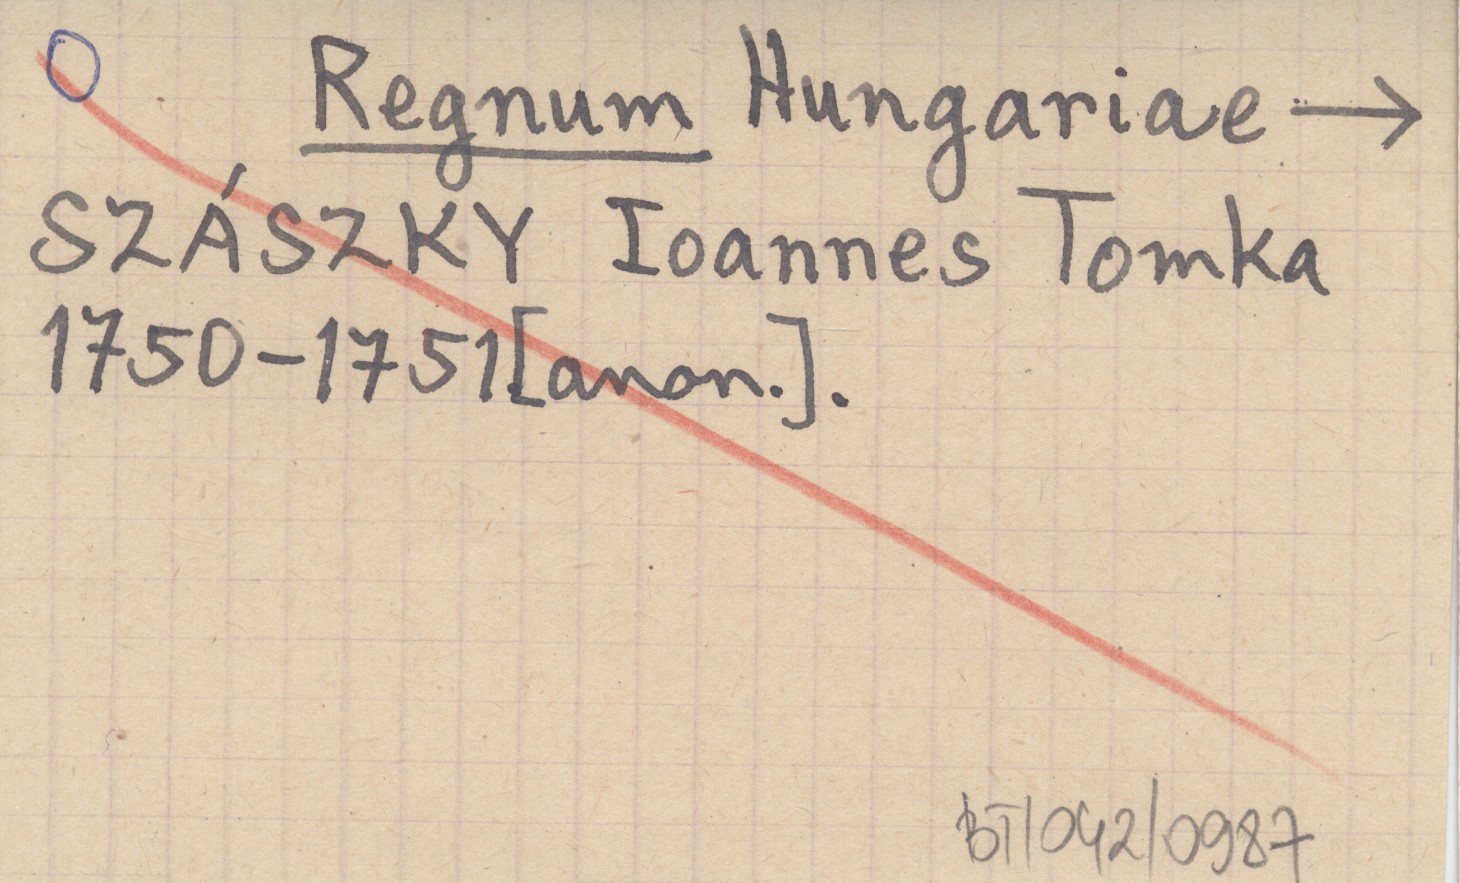 Regnum Hungariae →
SZÁSZKY Ioannes Tomka
1750-1751[anon.].
BT/042/0987